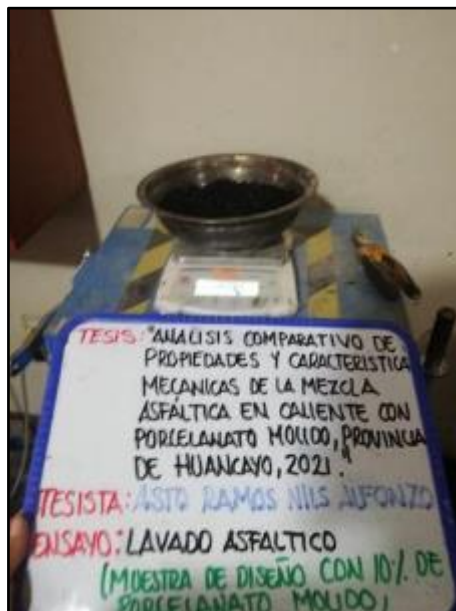 TESIS: "ANALISIS COMPARATIVO DE
PROPIEDADES Y CARACTERISTICA
MECANICAS DE LA MEZCLA
ASFÁLTICA EN CALIENTE CON
PORCELANATO MOLIDO, PROVINCIA
DE HUANCAYO, 2021."
TESISTA: ASTO RAMOS NILS
ENSAYO: LAVADO ASFALTICO
(MUESTRA DE DISEÑO CON 10% DE
PORCELANATO MOLIDO)